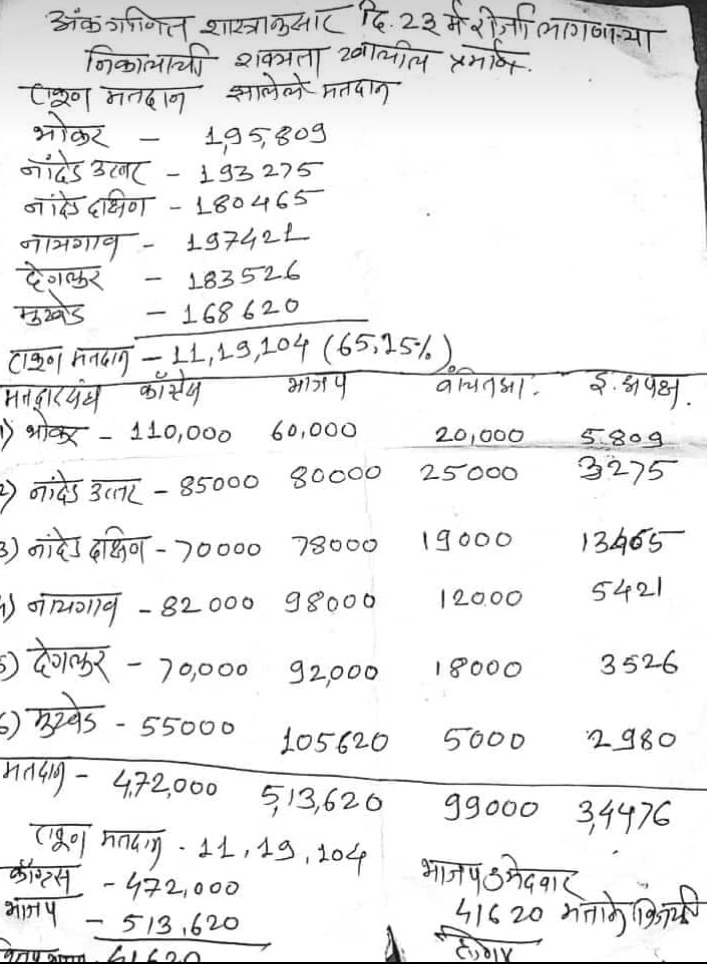 अंकगणित शास्त्रानुसार दि. 23 मे रोजी लागणाऱ्या
निकालाची शक्यता खालील प्रमाणे.
एकूण मतदान झालेले मतदान
भोकर - 1,95,809
नांदेड उत्तर - 193275
नांदेड दक्षिण - 180465
नायगाव - 197421
देगलूर - 183526
मुखेड - 168620
एकूण मतदान - 11,19,104 (65.15%)
मतदारसंघ काँग्रेस भाजप वंचितआ. इ. अपक्ष.
1) भोकर - 110,000 60,000 20,000 5809
2) नांदेड उत्तर - 85000 80000 25000 3275
3) नांदेड दक्षिण - 70000 78000 19000 13465
4) नायगाव - 82000 98000 12000 5421
5) देगलूर - 70,000 92,000 18000 3526
6) मुखेड - 55000 105620 5000 2980
मतदान - 4,72,000 5,13,620 99000 3,4476
एकूण मतदान - 11,19,104
काँग्रेस - 472,000
भाजप - 513,620
41620
भाजप उमेदवार
41620 मताने विजयी
होणार